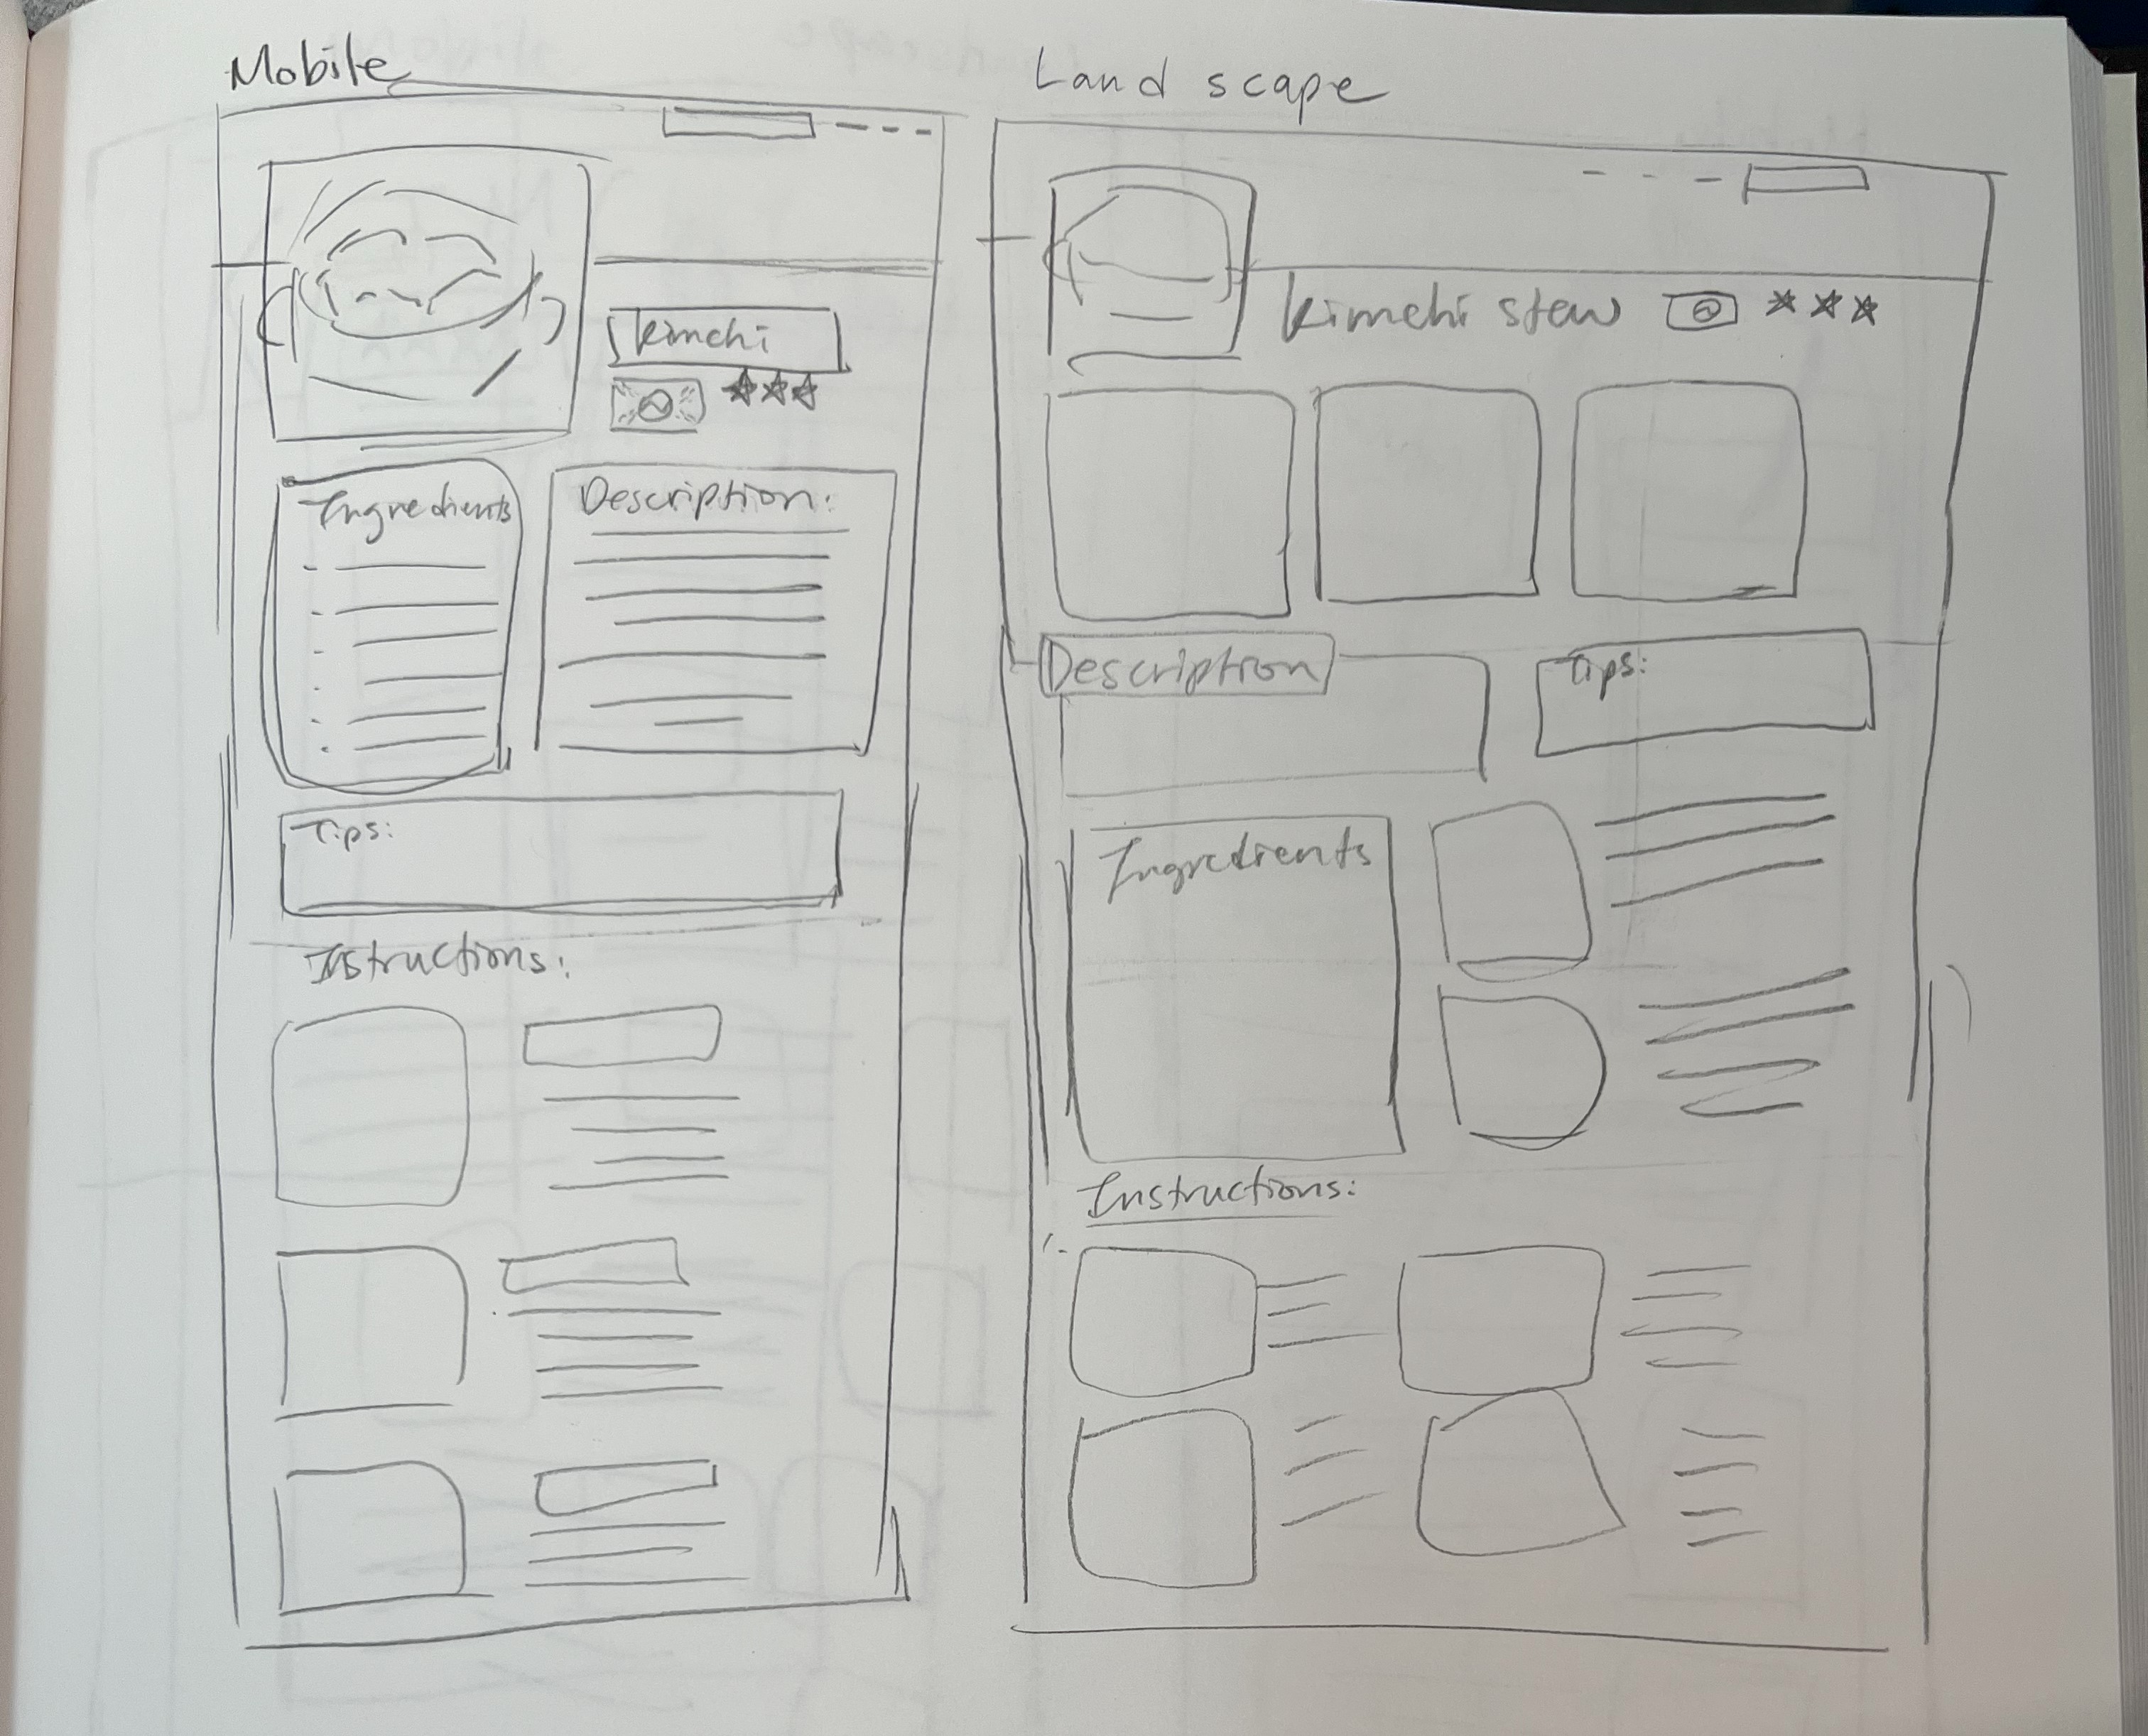 Mobile
Kimchi
Ingredients
Description:
Tips:
Instructions:
Landscape
Kimchi stew
Description
Tips:
Ingredients
Instructions: